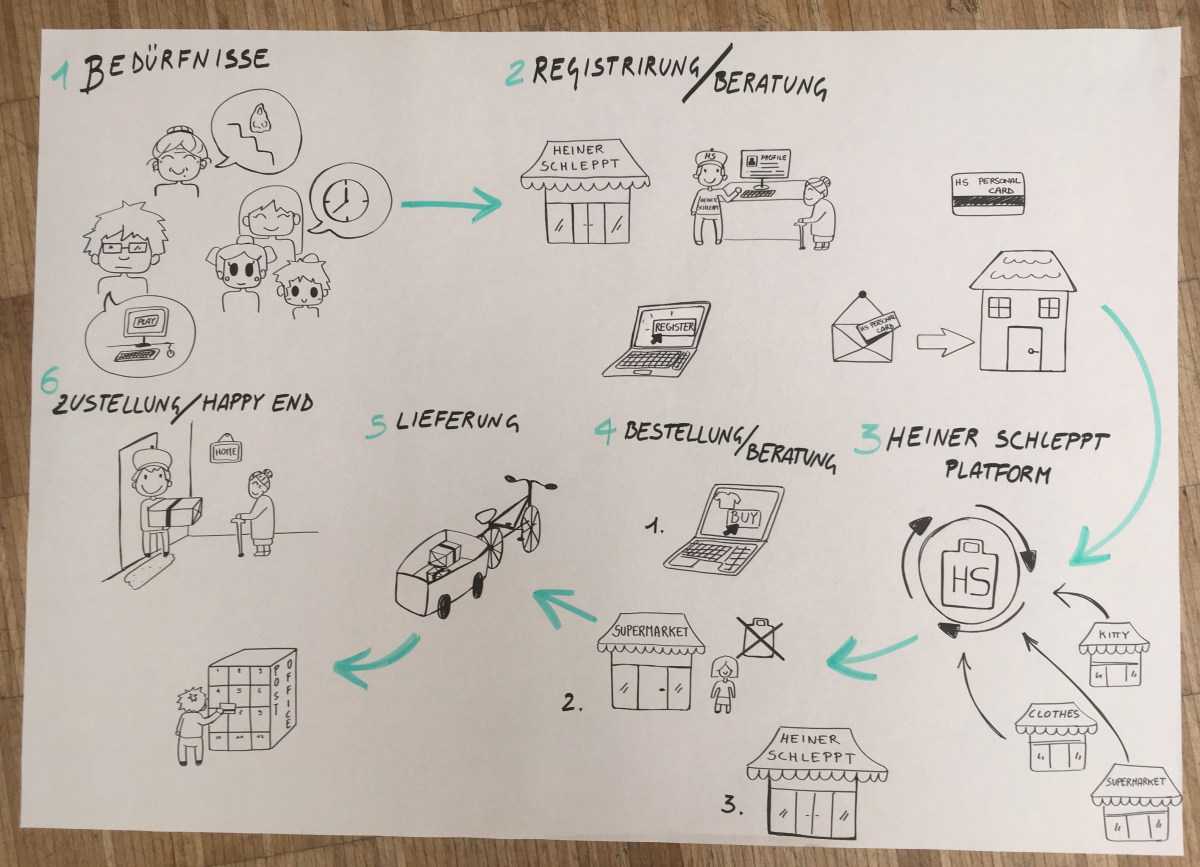 1 BEDÜRFNISSE
PLAY
2 REGISTRIRUNG/BERATUNG
HEINER
SCHLEPPT
HS
HEINER
SCHLEPPT
PROFILE
HS PERSONAL
CARD
REGISTER
HS PERSONAL
CARD
3 HEINER SCHLEPPT
PLATFORM
HS
KITTY
CLOTHES
SUPERMARKET
4 BESTELLUNG/
BERATUNG
1.
BUY
2.
SUPERMARKET
3.
HEINER
SCHLEPPT
5 LIEFERUNG
6
ZUSTELLUNG/HAPPY END
HOME
POST
OFFICE
1 2 3
4 5 6